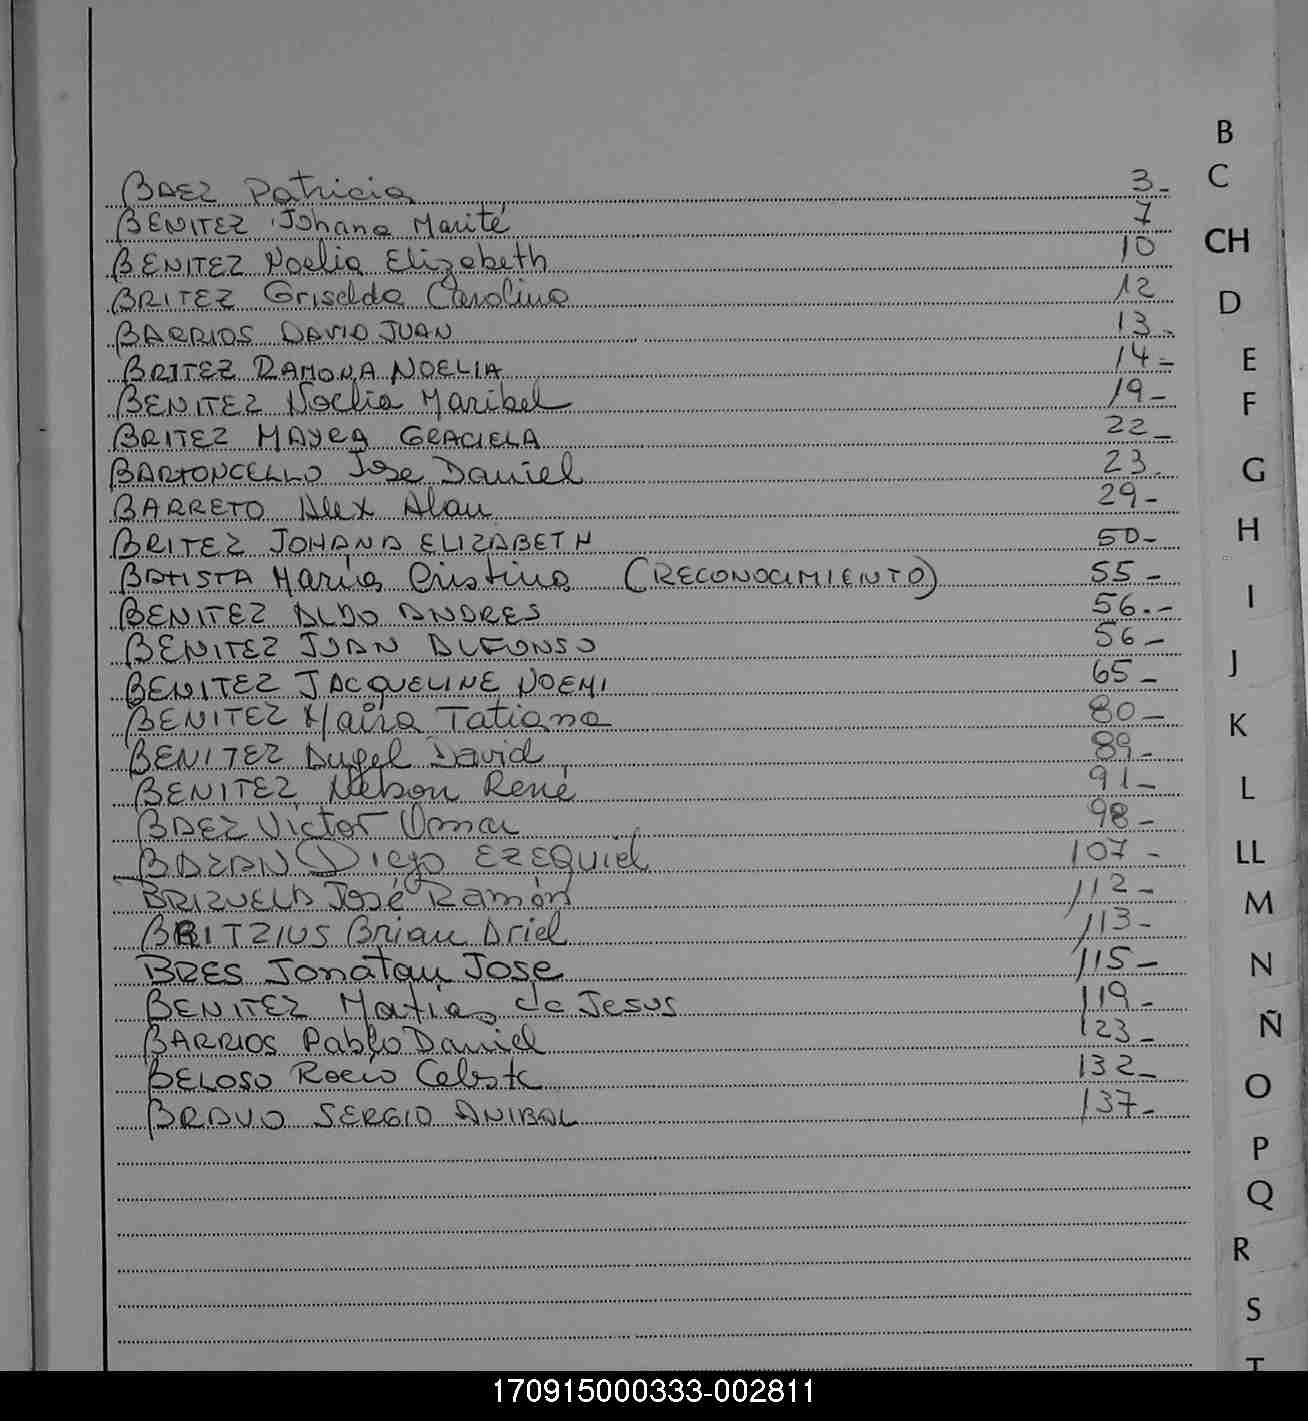 B
C
CH
D
E
F
G
H
I
J
K
L
LL
M
N
Ñ
O
P
Q
R
S
T
BAEZ Patricia 3-
BENITEZ Johana Marité 7
BENITEZ Noelia Elizabeth 10
BRITEZ Griselda Carolina 12
BARRIOS DAVID JUAN 13-
BRITEZ RAMONA NOELIA 14-
BENITEZ Noelia Maribel 19-
BRITEZ MAYRA GRACIELA 22-
BARTONCELLO Jose Daniel 23-
BARRETO Alex Alan 29-
BRITEZ JOHANA ELIZABETH 50-
BATISTA María Cristina (RECONOCIMIENTO) 55-
BENITEZ ALDO ANDRES 56.-
BENITEZ JUAN ALFONSO 56-
BENITEZ JACQUELINE NOEMI 65-
BENITEZ Maira Tatiana 80-
BENITEZ Angel David 89-
BENITEZ Nelson René 91-
BAEZ Victor Omar 98-
BAZAN Diego EZEQUiel 107-
BRIZUELA José Ramón 112-
BRITZIUS Brian Ariel 113-
BRES Jonatan Jose 115-
BENITEZ Matias de Jesus 119-
BARRIOS Pablo Daniel 123-
BELOSO Rocio Celeste 132-
BRAVO SERGIO ANIBAL 137-
170915000333-002811